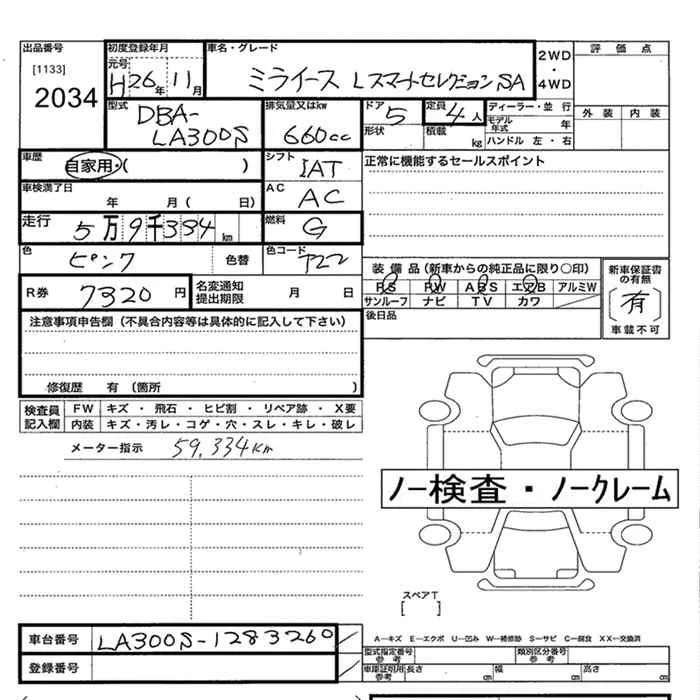 出品番号 初度登録年月 車名・グレード 2WD・4WD 評価点
[1133] 元号
2034 H26年11月 ミライース Lスマートセレクション SA
型式 排気量又はkw ドア 定員 ディーラー・並行
DBA-LA300S 660cc 5 4人 モデル年式 年 外装 内装
形状 積載 kg ハンドル 左・右
車歴 自家用・( ) シフト IAT 正常に機能するセールスポイント
車検満了日 年 月( 日) AC AC
走行 5万9千334km 燃料 G
色 ピンク 色替 色コード
装備品(新車からの純正品に限り○印) 新車保証書の有無
R券 7320円 名変通知提出期限 月 日 PS PW ABS エアB アルミW
サンルーフ ナビ TV カワ [有]
注意事項申告欄(不具合内容等は具体的に記入して下さい) 後日品 車載不可
修復歴 有(箇所 )
検査員記入欄 FW キズ・飛石・ヒビ割・リペア跡・X要
内装 キズ・汚レ・コゲ・穴・スレ・キレ・破レ
メーター指示 59,334km
ノー検査・ノークレーム
スペアT
[ ]
車台番号 LA300S-1283260
A―キズ E―エクボ U―凹み W―補修跡 S―サビ C―腐食 XX―交換済
登録番号 型式指定番号参考 類別区分番号参考
車庫証明用参考 長さ cm 幅 cm 高さ cm